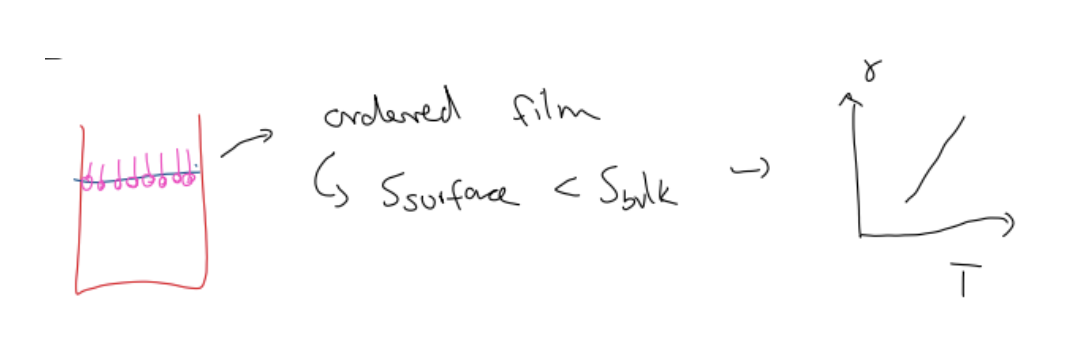 ordered film
↳ Ssurface < Sbulk →
γ
T